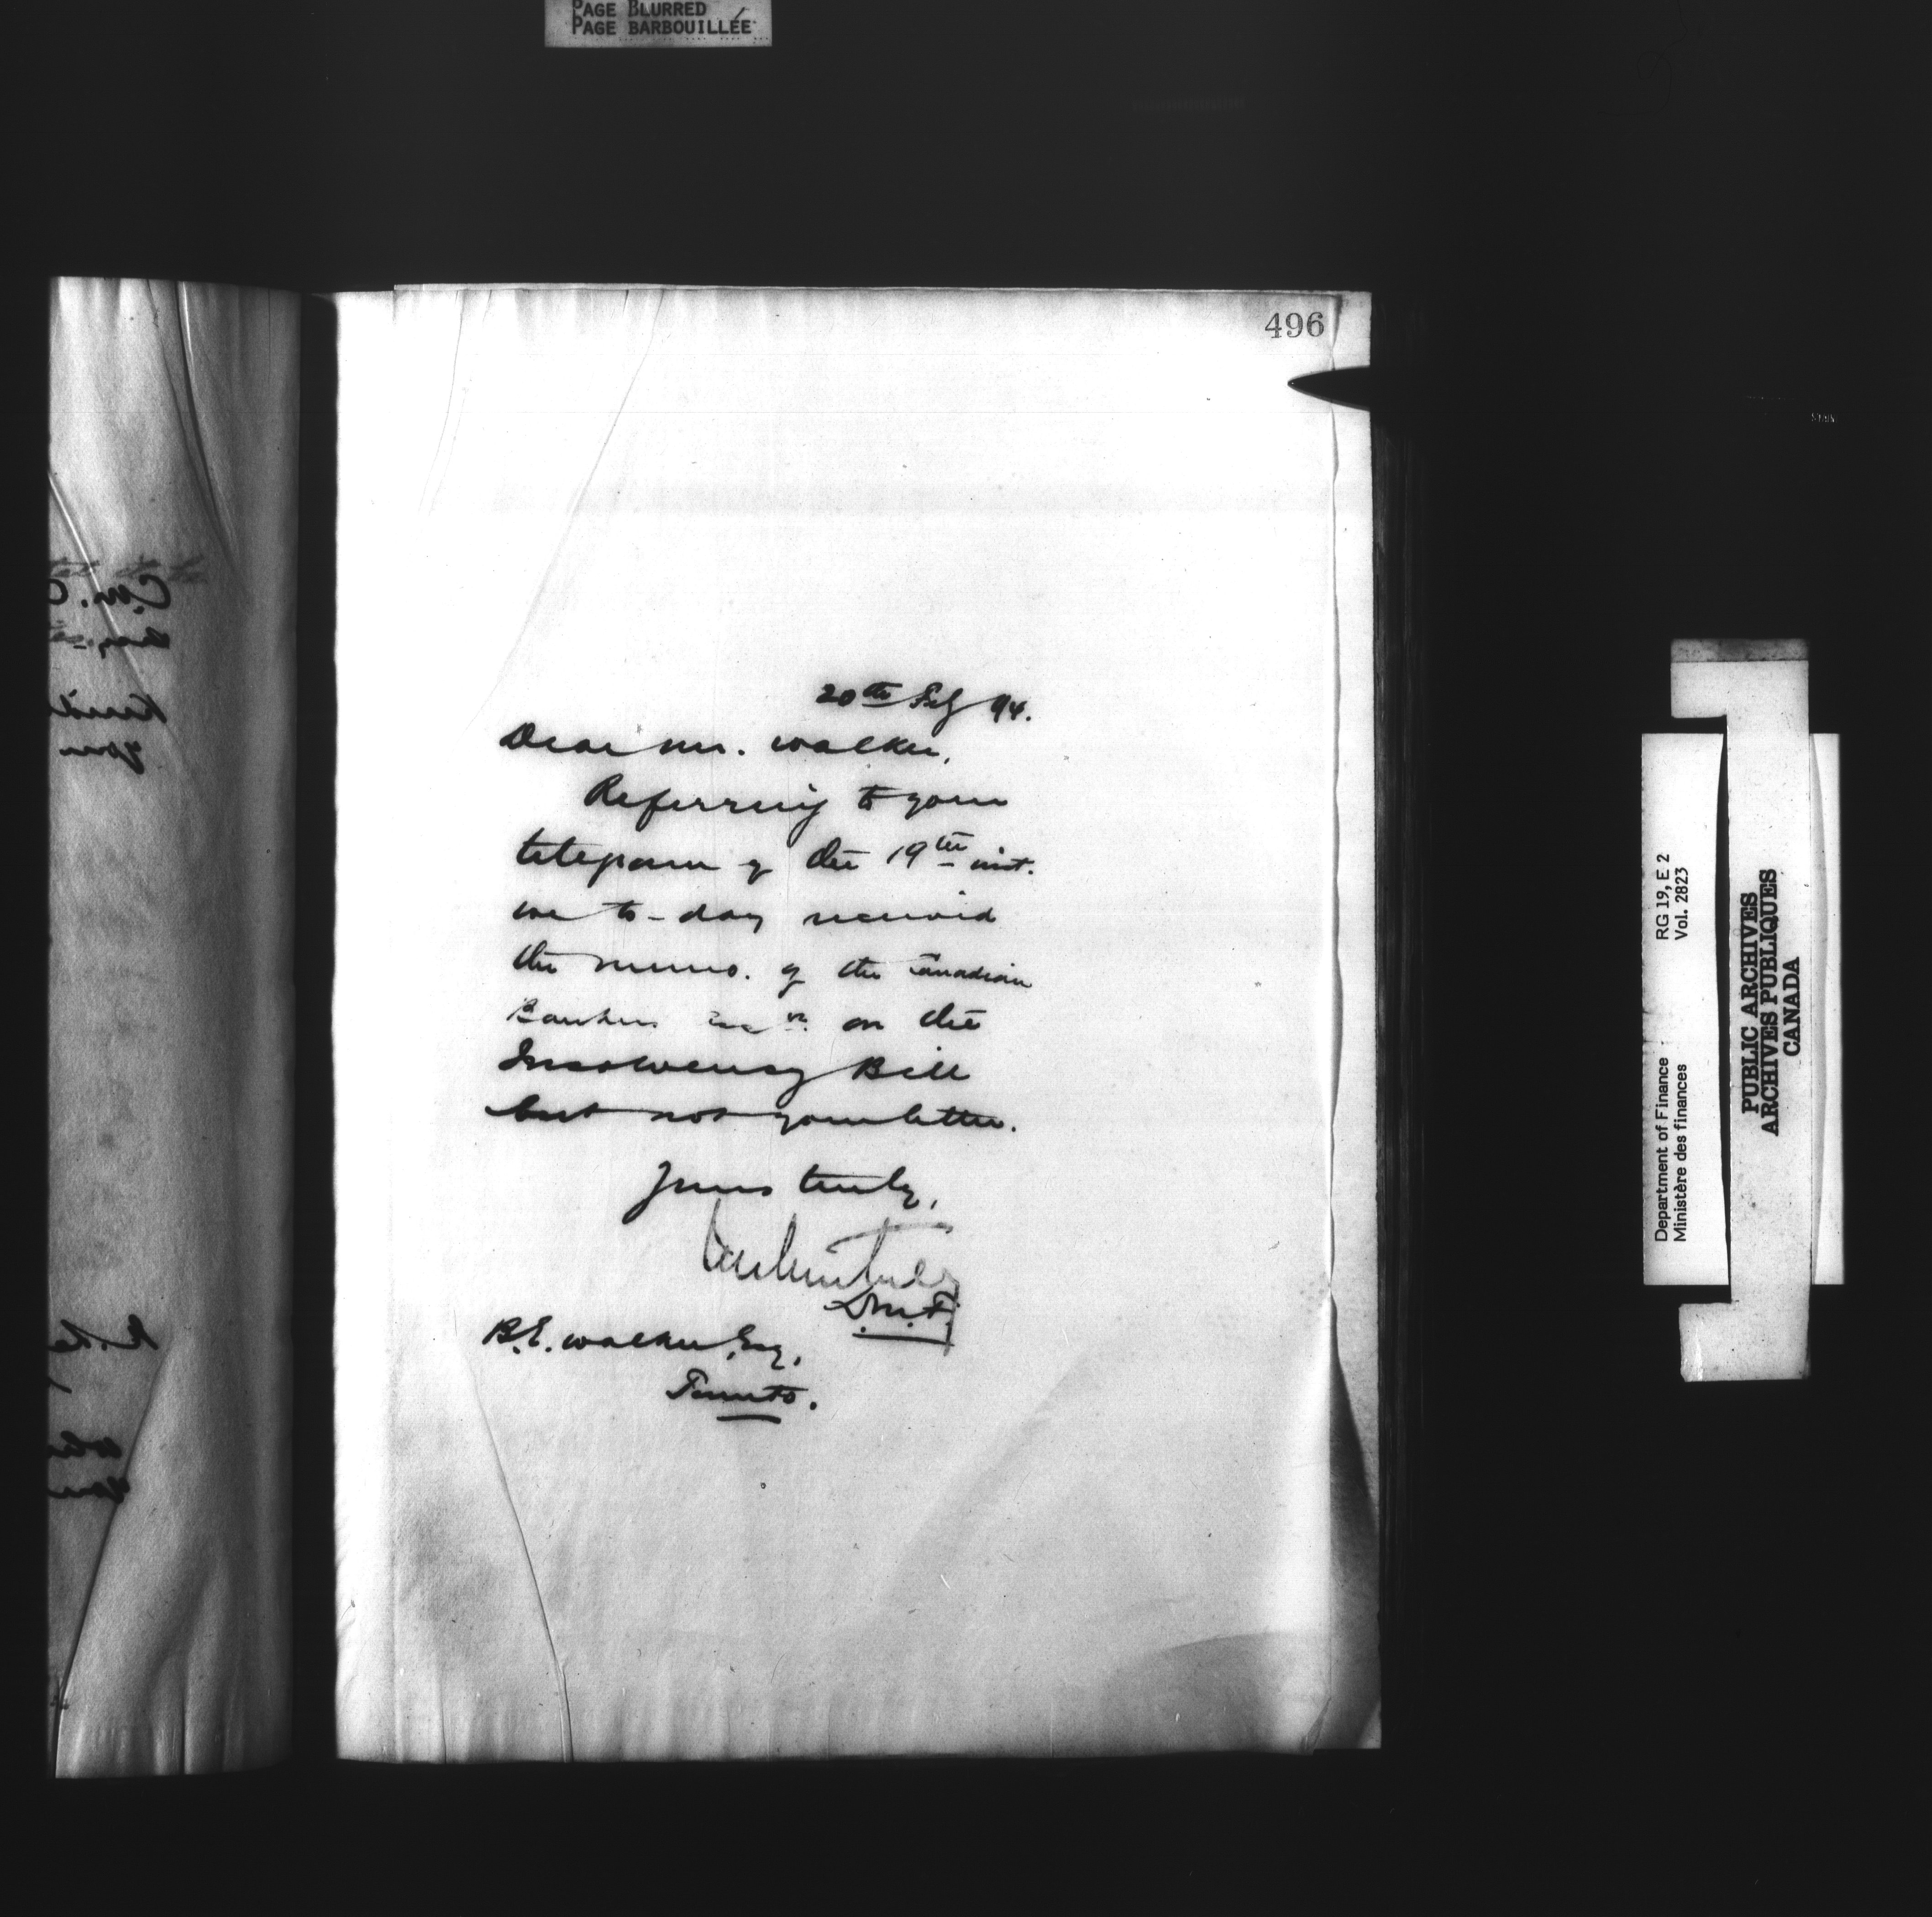 PAGE BLURRED
PAGE BARBOUILLÉE
496
20th Feby 94.
Dear Mr. Walker,
Referring to your
telegram of the 19th inst.
we to-day received
the memo. of the Canadian
Bankers Assn. on the
Insolvency Bill
but not your letter.
Yours truly,
D.M.F.
B.E. Walker, Esq,
Toronto.
Department of Finance
Ministère des finances
RG 19, E 2
Vol. 2823
PUBLIC ARCHIVES
ARCHIVES PUBLIQUES
CANADA